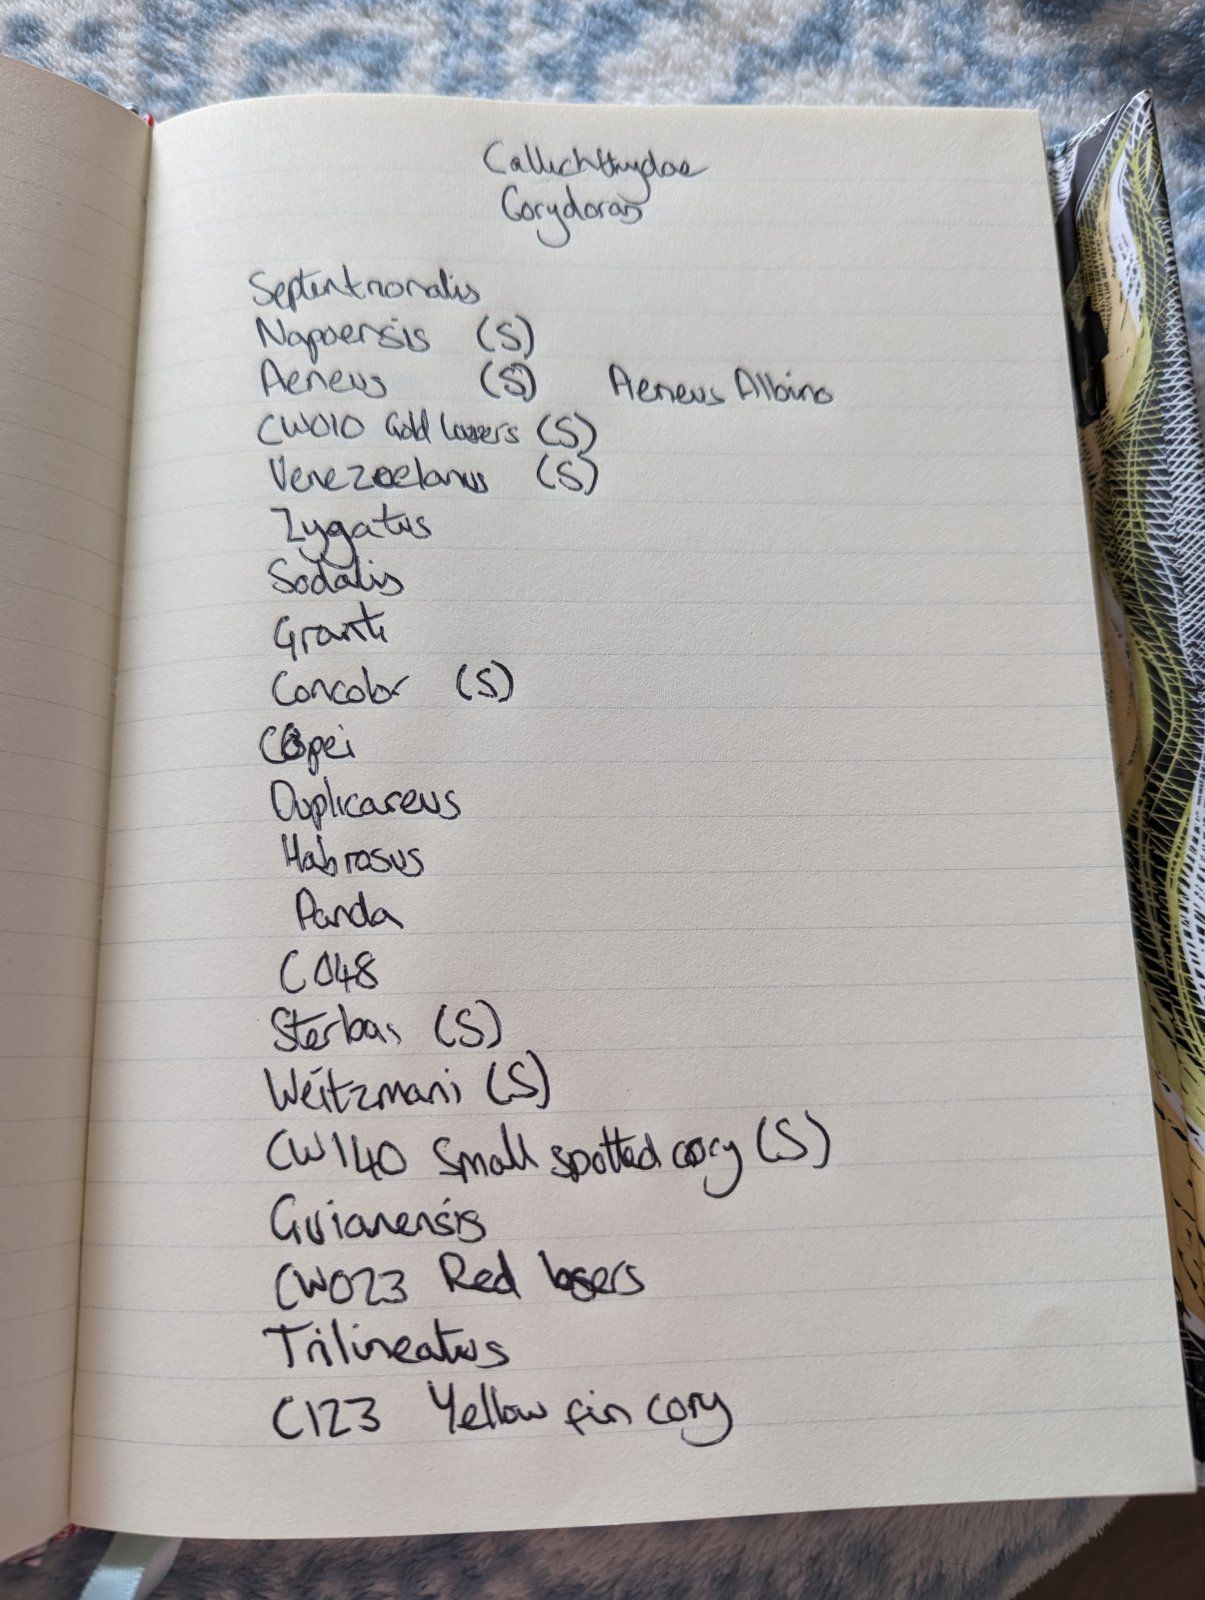 Callichthydae
Corydoras
Septentrionalis
Napoensis (S)
Aeneus (S) Aeneus Albino
CW010 Gold lazers (S)
Venezoelanus (S)
Zygatus
Sodalis
Granti
Concolor (S)
Copei
Duplicareus
Habrosus
Panda
C048
Sterbai (S)
Weitzmani (S)
CW140 Small spotted cory (S)
Guianensis
CW023 Red lasers
Trilineatus
C123 Yellow fin cory